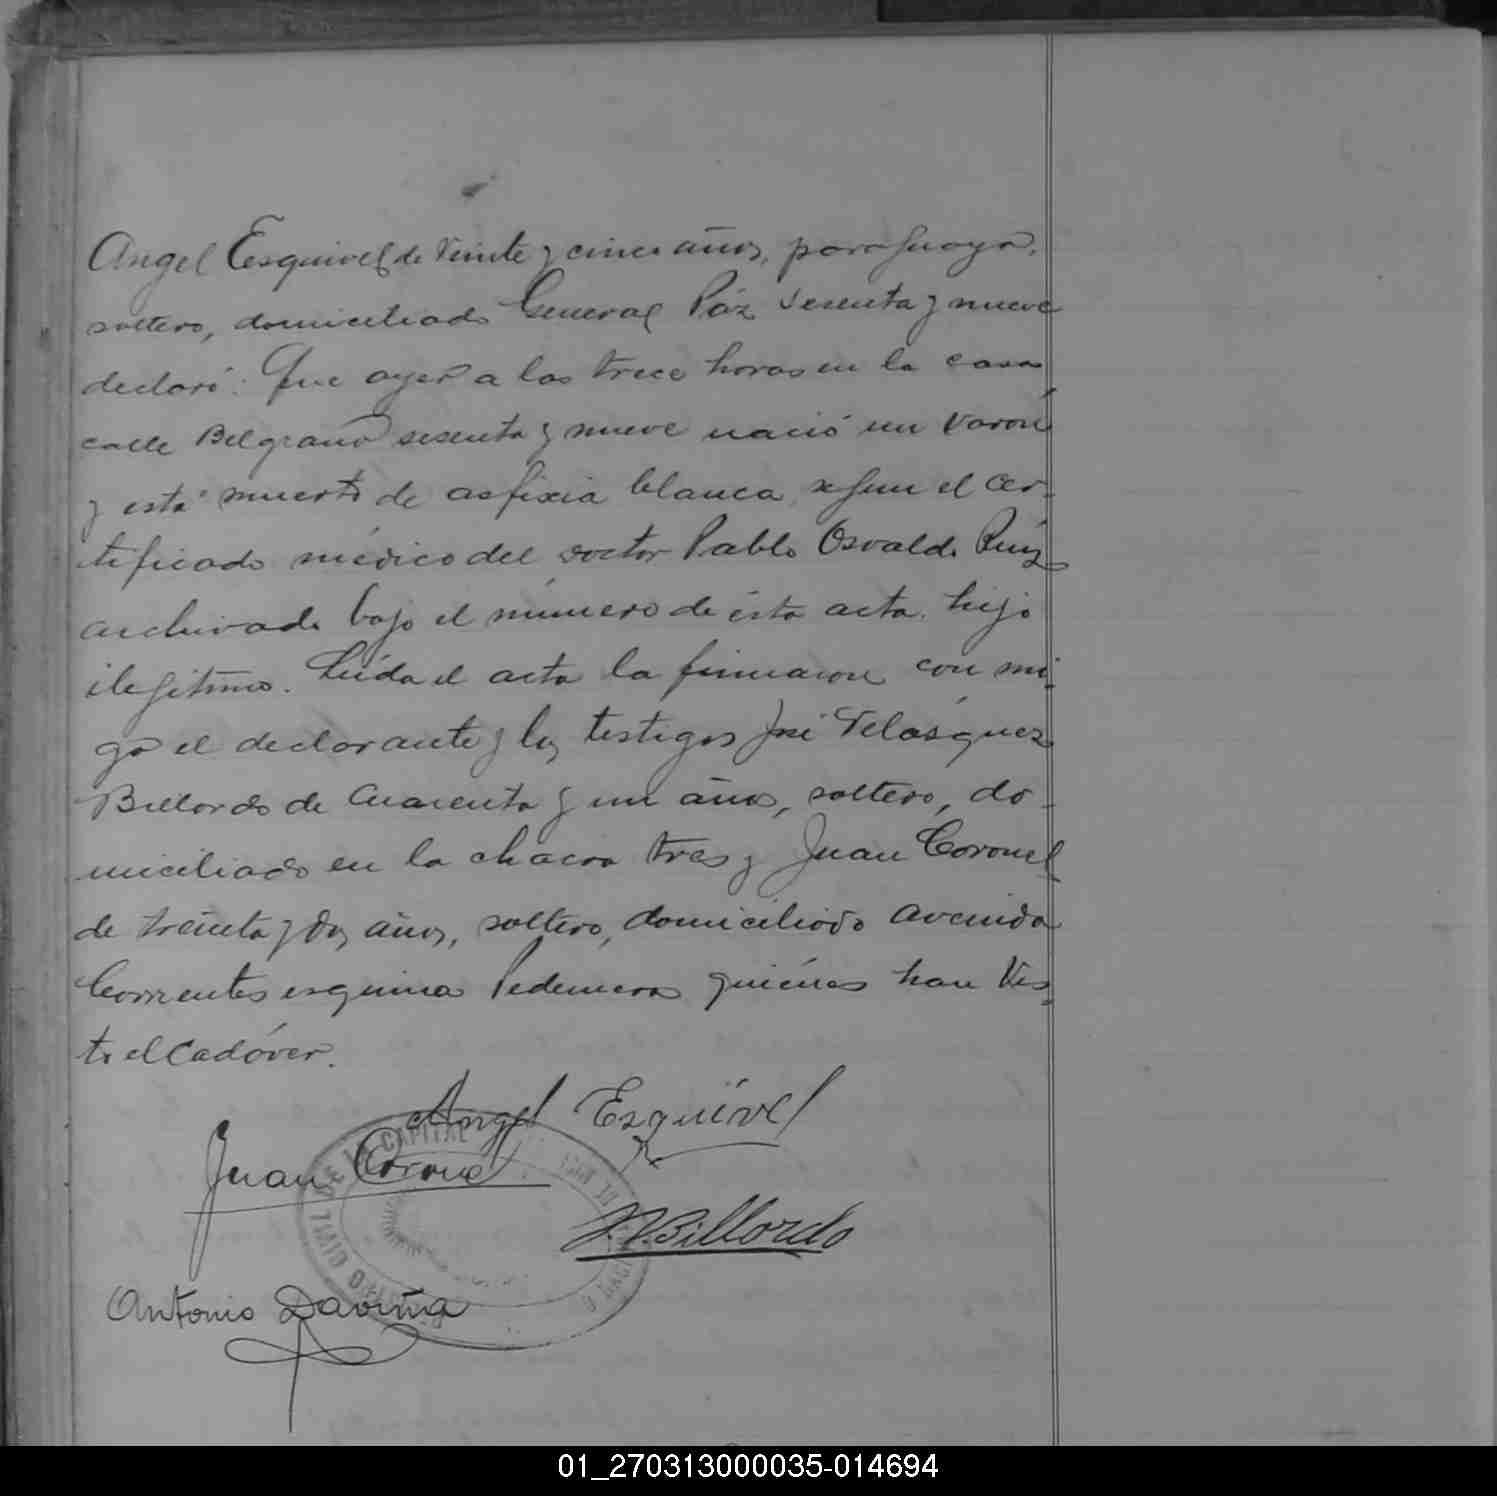 Angel Esquivel de veinte y cinco años, paraguayo,
soltero, domiciliado General Páz sesenta y nueve
declaró: Que ayer a las trece horas en la casa
calle Belgrano sesenta y nueve nació un varón
y está muerto de asfixia blanca, segun el cer-
tificado médico del doctor Pablo Osvaldo Ruíz
archivado bajo el número de ésta acta. hijo
ilegítimo. Leída el acta la firmaron con mi-
go el declarante y los testigos José Velásquez
Billordo de cuarenta y un años, soltero, do-
miciliado en la chacra tres y Juan Coronel
de treinta y dos años, soltero, domiciliado avenida
Corrientes esquina Pedernera quiénes han vis-
to el cadáver.
Angel Esquível
Juan Coronel
J. V. Billordo
Antonio Daviña
DE LA CAPITAL
CIVIL
01_270313000035-014694